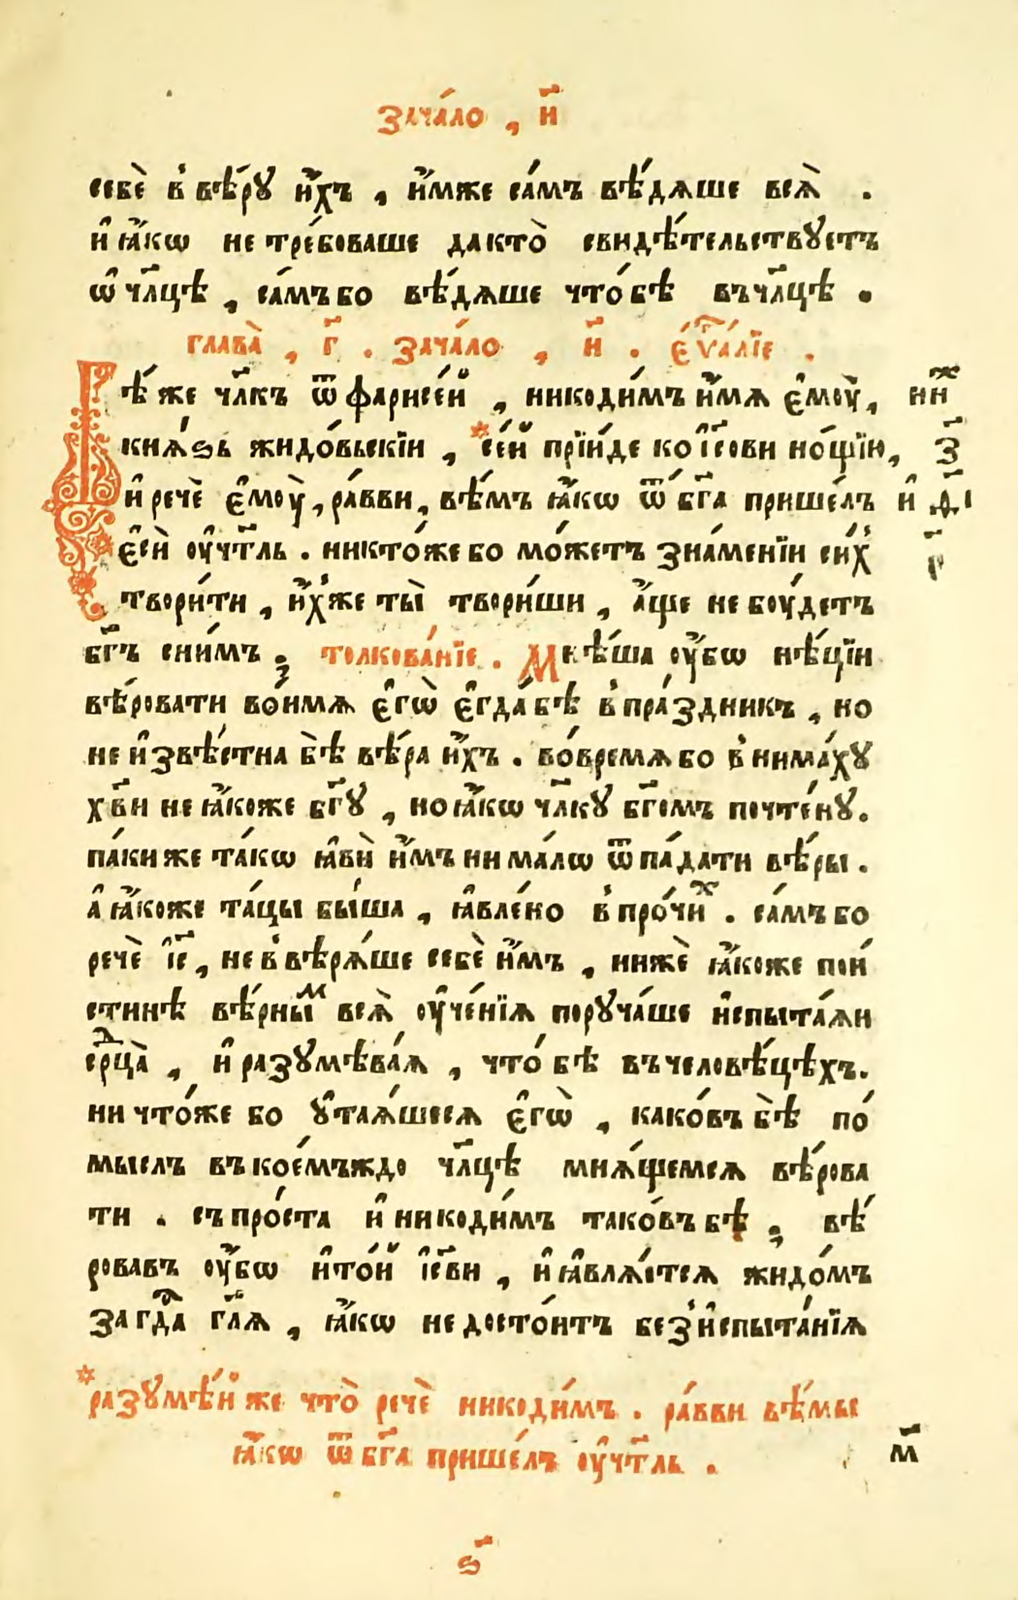 зача́ло , и҃
себѐ в̾ вѣ́ру и҆́хъ , и҆́мже са́мъ вѣ́дяше вся̀ .
и҆ ꙗ҆́кѡ не тре́боваше да кто̀ свидѣ́тельствꙋетъ
ѡ҆ чл҃цѣ , са́мъ бо вѣ́дяше что́ бѣ въ чл҃цѣ .
глава̀ , г҃ . зача́ло , и҃ . є҆ѵⷢ҇а́лїе .
Бѣ́ же чл҃къ ѿ фарисе́й , никоди́мъ и҆́мя є҆моу̀ ,
кня́ѕь жидо́вьскїи , * се́й прїи́де ко і҆с҃ови но́щїю ,
и҆ речѐ є҆моу̀ , ра́вви , вѣ́мъ ꙗ҆́кѡ ѿ бг҃а прише́лъ
є҆сѝ оу҆чт҃ль . никто́же бо мо́жетъ зна́менїи си́х
твори́ти , и҆́хже ты̀ твори́ши , а҆́ще не боу́детъ
бг҃ъ сни́мъ . толкова́нїе . Мнѣ́ша оу҆́бѡ нѣ́цїи
вѣ́ровати во и́мя є҆гѡ̀ є҆гда́ бѣ в̾ пра́здникъ , но
не и҆звѣ́стна бѣ̀ вѣ́ра и҆́хъ . во́время бо в̾нима́хꙋ
хв҃и не ꙗ҆́коже бг҃ꙋ , но ꙗ҆́кѡ чл҃кꙋ бг҃омъ почте́нꙋ .
па́ки же та́кѡ ꙗ҆вѝ и҆́мъ нима́лѡ ѿпа́дати вѣ́ры .
а҆ ꙗ҆́коже та́цы бы́ша , ꙗ҆вле́но в̾ про́чиⷯ . са́мъ бо
речѐ і҆с҃ , не в̾вѣря́ше себѐ и҆́мъ , нижѐ ꙗ҆́коже пои́
стинѣ вѣ́рныⷨ вся̀ оу҆че́нїя порꙋча́ше и҆спыта́яи
срⷣца̀ , и҆ разꙋмѣва́я , что́ бѣ въ человѣ́цѣхъ .
ничто́же бо ᲂу҆тая́шеся є҆гѡ̀ , како́въ бѣ̀ по́
мыслъ въ кое́мъждо чл҃цѣ мня́щемся вѣ́рова
ти . съ про́ста и҆ никоди́мъ тако́въ бѣ , вѣ́
ровавъ оу҆́бѡ и҆ то́й і҆с҃ви , и҆ ꙗ҆вля́ется жидо́мъ
за гдⷭ҇а гл҃я , ꙗ҆́кѡ не досто́итъ без̾ и҆спыта́нїя
* разꙋмѣ́й же что̀ речѐ никоди́мъ . ра́вви вѣ́мы
ꙗ҆́кѡ ѿ бг҃а прише́лъ оу҆чт҃ль .
м҃
ѕ҃